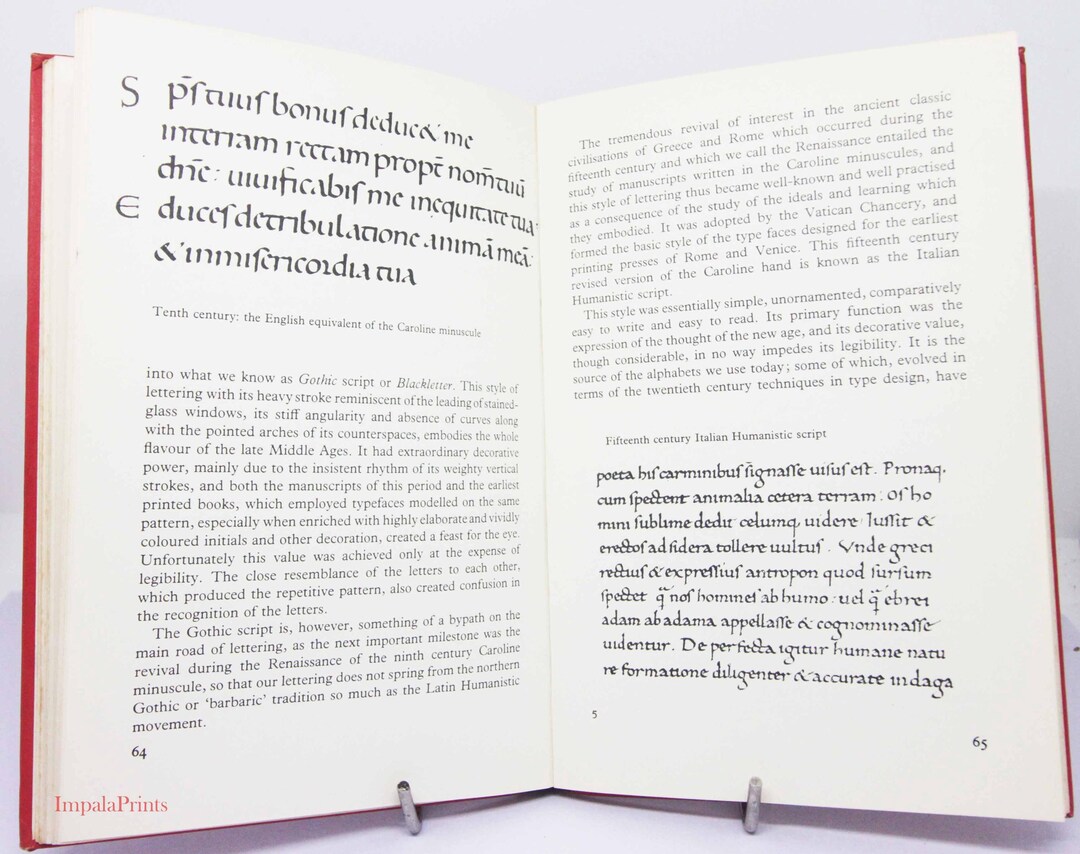 S p̄s tuus bonus deduc& me
interram rectam propt̄ nom̄ tuū
dn̄e: uiuificabis me inequitate tua·
E duces detribulatione animā meā:
& inmisericordia tua
Tenth century: the English equivalent of the Caroline minuscule
into what we know as Gothic script or Blackletter. This style of
lettering with its heavy stroke reminiscent of the leading of stained-
glass windows, its stiff angularity and absence of curves along
with the pointed arches of its counterspaces, embodies the whole
flavour of the late Middle Ages. It had extraordinary decorative
power, mainly due to the insistent rhythm of its weighty vertical
strokes, and both the manuscripts of this period and the earliest
printed books, which employed typefaces modelled on the same
pattern, especially when enriched with highly elaborate and vividly
coloured initials and other decoration, created a feast for the eye.
Unfortunately this value was achieved only at the expense of
legibility. The close resemblance of the letters to each other,
which produced the repetitive pattern, also created confusion in
the recognition of the letters.
The Gothic script is, however, something of a bypath on the
main road of lettering, as the next important milestone was the
revival during the Renaissance of the ninth century Caroline
minuscule, so that our lettering does not spring from the northern
Gothic or ‘barbaric’ tradition so much as the Latin Humanistic
movement.
64
The tremendous revival of interest in the ancient classic
civilisations of Greece and Rome which occurred during the
fifteenth century and which we call the Renaissance entailed the
study of manuscripts written in the Caroline minuscules, and
this style of lettering thus became well-known and well practised
as a consequence of the study of the ideals and learning which
they embodied. It was adopted by the Vatican Chancery, and
formed the basic style of the type faces designed for the earliest
printing presses of Rome and Venice. This fifteenth century
revised version of the Caroline hand is known as the Italian
Humanistic script.
This style was essentially simple, unornamented, comparatively
easy to write and easy to read. Its primary function was the
expression of the thought of the new age, and its decorative value,
though considerable, in no way impedes its legibility. It is the
source of the alphabets we use today; some of which, evolved in
terms of the twentieth century techniques in type design, have
Fifteenth century Italian Humanistic script
poeta his carminibus signasse uisus est. Pronaq.
cum spectent animalia cetera terram: Os ho
mini sublime dedit celumq uidere Iussit &
erectos ad sidera tollere uultus. Vnde greci
rectius & expressius antropon quod sursum
spectet q̄ nos homines ab humo: uel q̄ ebrei
adam ab adama appellasse & cognominasse
uidentur. De perfecta igitur humane natu
re formatione diligenter & accurate indaga
5
65
ImpalaPrints